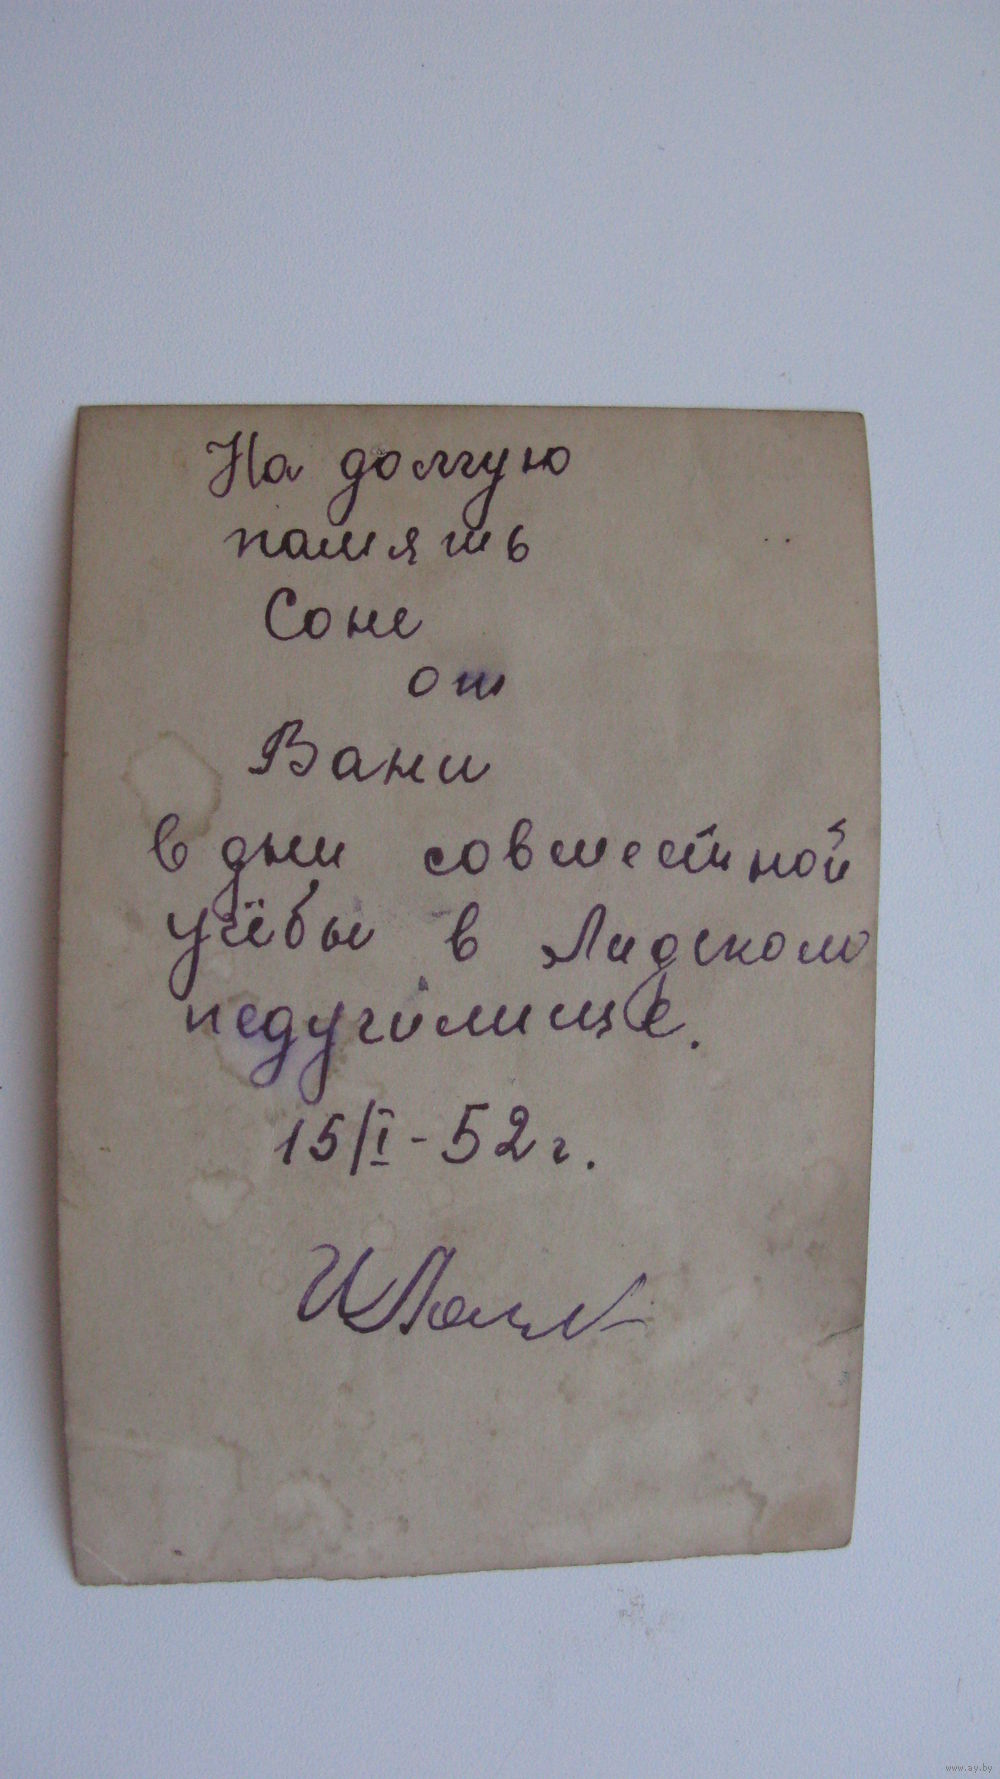 На долгую
память
Соне
от
Вани
в дни совместной
учёбы в Лидском
педучилище.
15/I-52 г.
www.ay.by